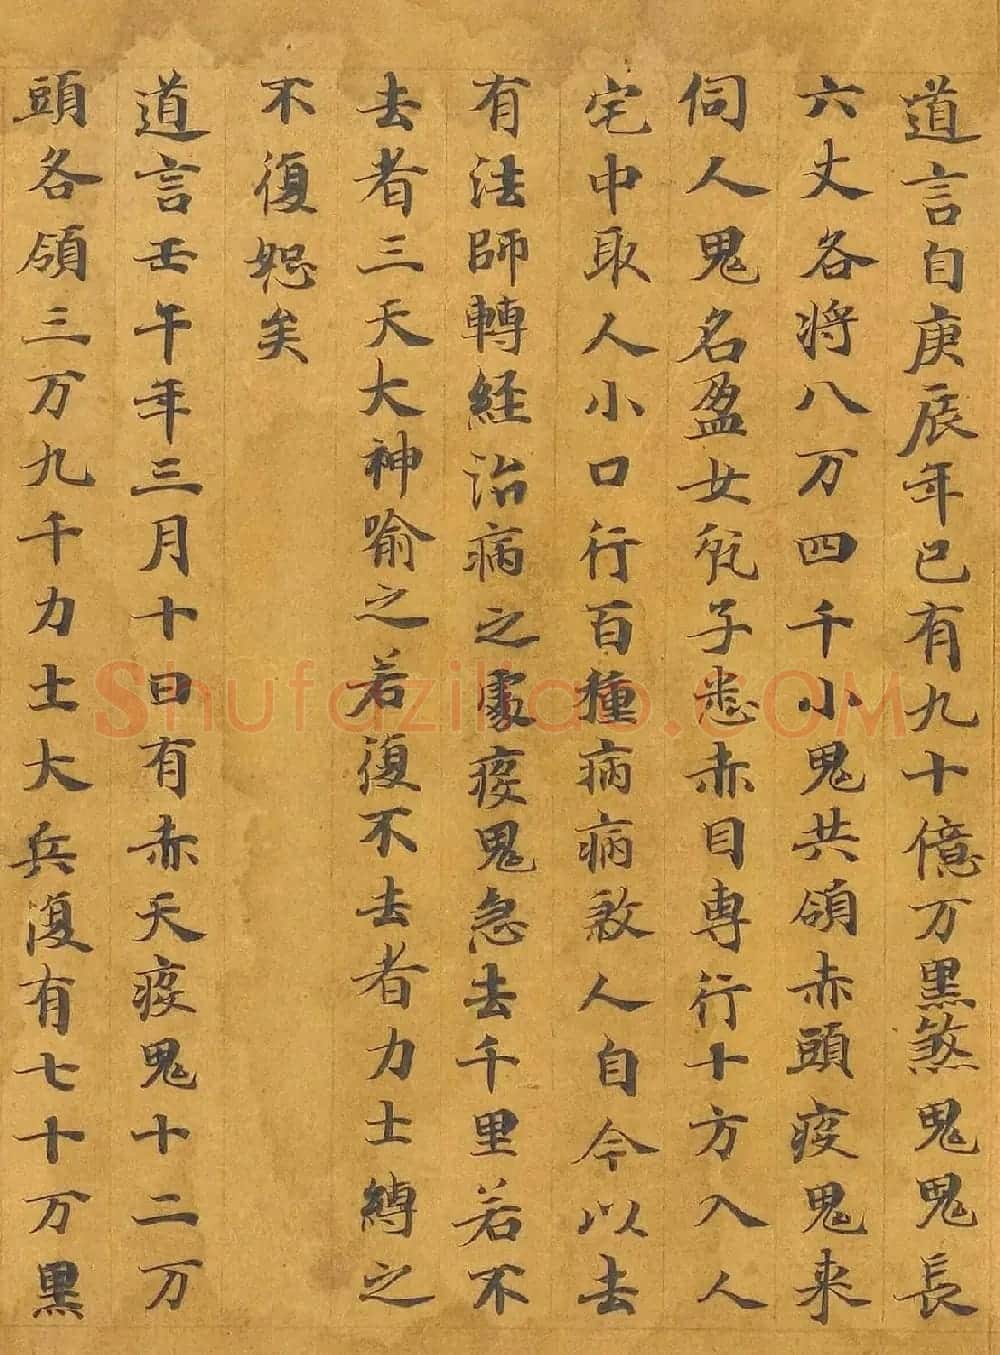 道言自庚辰年已有九十億万黑煞鬼鬼長
六丈各将八万四千小鬼共領赤頭疫鬼来
伺人鬼名盈女瓨子悉赤目専行十方入人
宅中取人小口行百種病病煞人自今以去
有法師轉経治病之處疫鬼急去千里若不
去者三天大神喻之若復不去者力士縛之
不復恕矣
道言壬午年三月十日有赤天疫鬼十二万
頭各領三万九千力士大兵復有七十万黒
Shufaziliao.COM